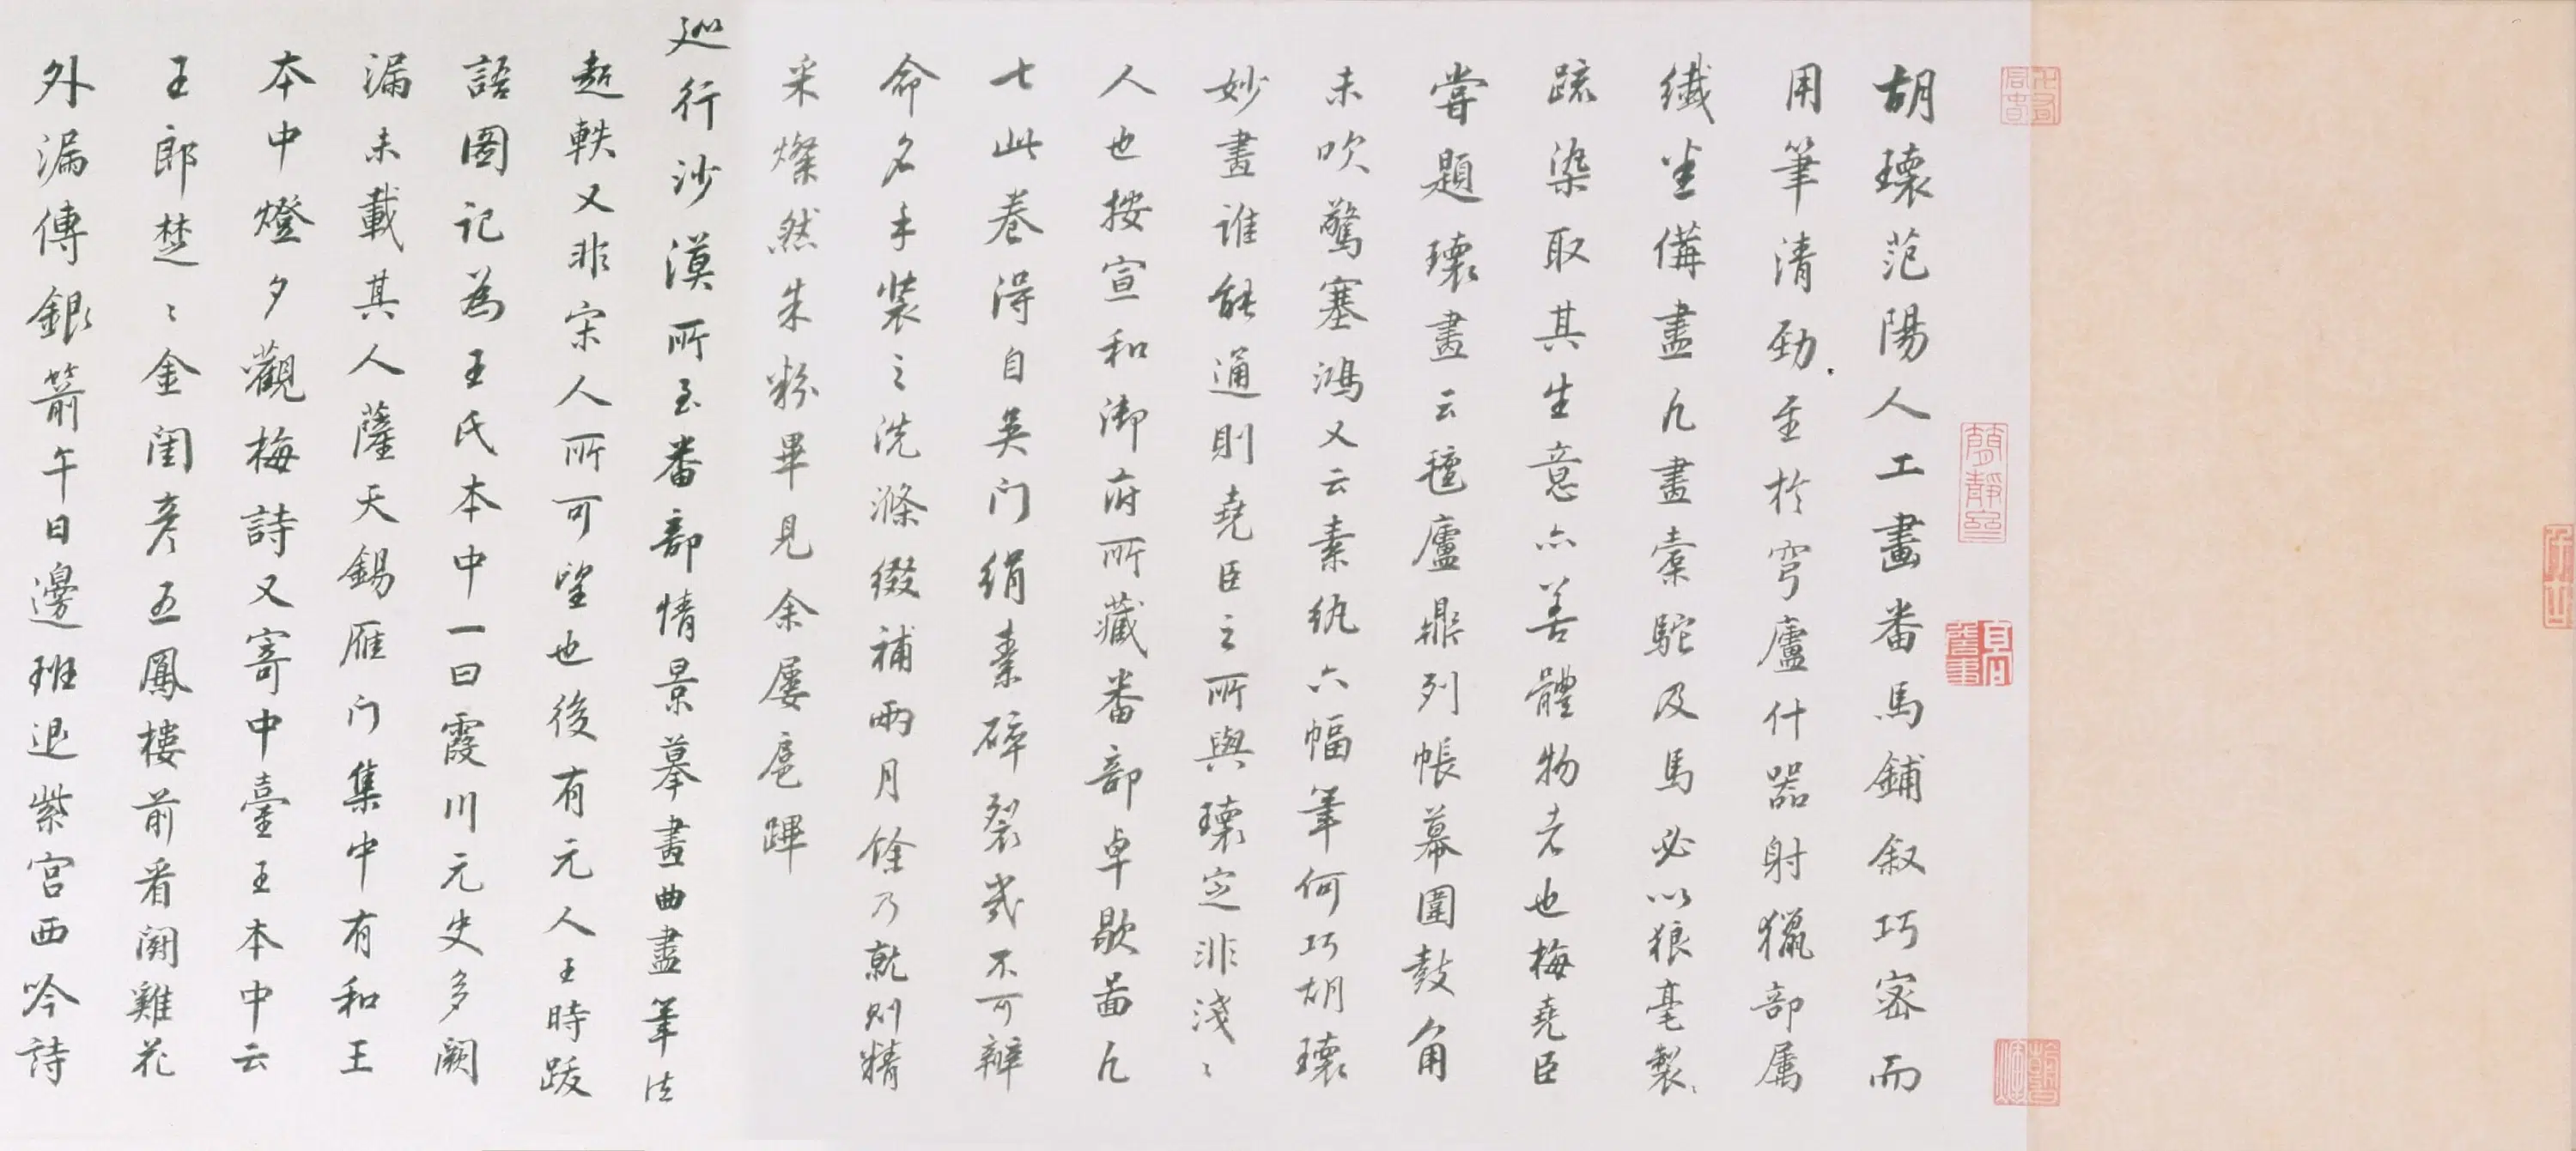 胡瓌范陽人工畫番馬鋪叙巧密而
用筆清勁至於穹廬什器射獵部属
纖悉備盡凡畫橐駝及馬必以狼毫製
疏染取其生意亦善體物者也梅堯臣
嘗題瓌畫云氊廬鼎列帳幕圍鼓角
未吹驚塞鴻又云素紈六幅筆何巧胡瓌
妙畫誰能通則堯臣之所與瓌定非淺〻
人也按宣和御府所藏番部卓歇啚凡
七此卷得自吳门絹素碎裂幾不可辯
命名手裝之洗滌綴補兩月餘乃就則精
采燦然朱粉畢見余屡扈蹕
巡行沙漠所至番部情景摹畫曲盡筆法
超軼又非宋人所可望也後有元人王時跋
語圖记為王氏本中一曰霞川元史多闕
漏未載其人薩天錫雁门集中有和王
本中燈夕觀梅詩又寄中臺王本中云
王郎楚〻金闺彦五鳳樓前看闘雞花
外漏傳銀箭午日邊班退紫宫西吟詩